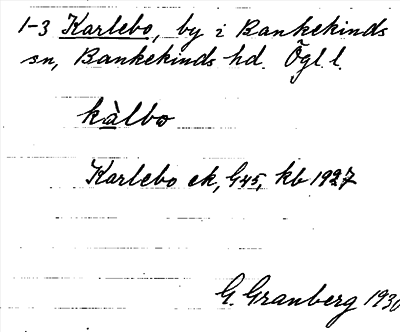 1-3 Karlebo, by i Bankekinds
sn, Bankekinds hd. Ögl. l.
kàlbo
Karlebo ek, G45, kb 1927
G. Granberg 1930